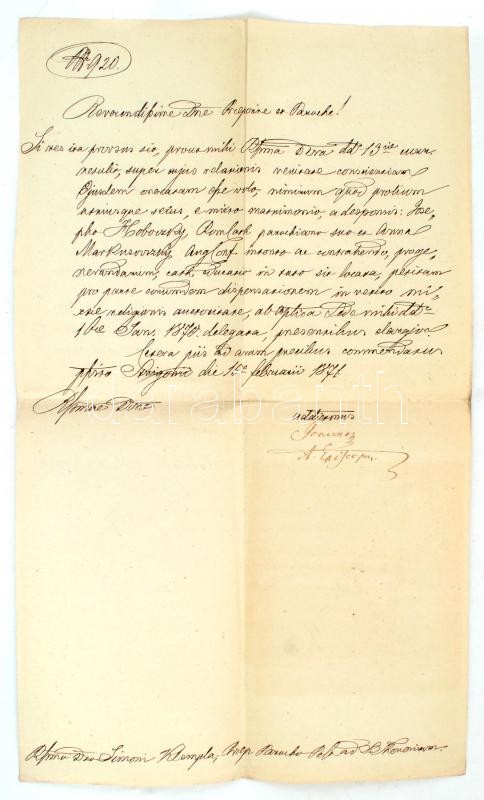 Nr 920.
Reverendissime Dne Praeposite et Paroche!
Si res ita prorsus sit, prout mihi Rssma D Vra ddo 13tia curr.
retulit, super cujus relationis veritate conscientiam
Ejusdem oneratam esse volo, nimirum quod prolium
utriusque sexus, e mixto matrimonio, a desponsis: Jose-
pho Hoboczky, Rom Cath parochiano suo et Anna
Markusovszky Aug Conf intento ac contrahendo, proge-
nerandarum, cath. educatio in tuto sit locata, petitam
pro parte eorumdem dispensationem in vetito mi-
xtae religionis auctoritate, ab Aptica Sede mihi ddo
16ae Jan. 1871. delegata, praesentibus elargior.
Cetera piis ad aram precibus commendatus
Strigonii die 15a februarii 1871.
Rssmae Dnae
addictmus
A. Episcopus
Rssmo Dno Simoni Klempa, Praep Parocho ad S Thomam.
darabanth